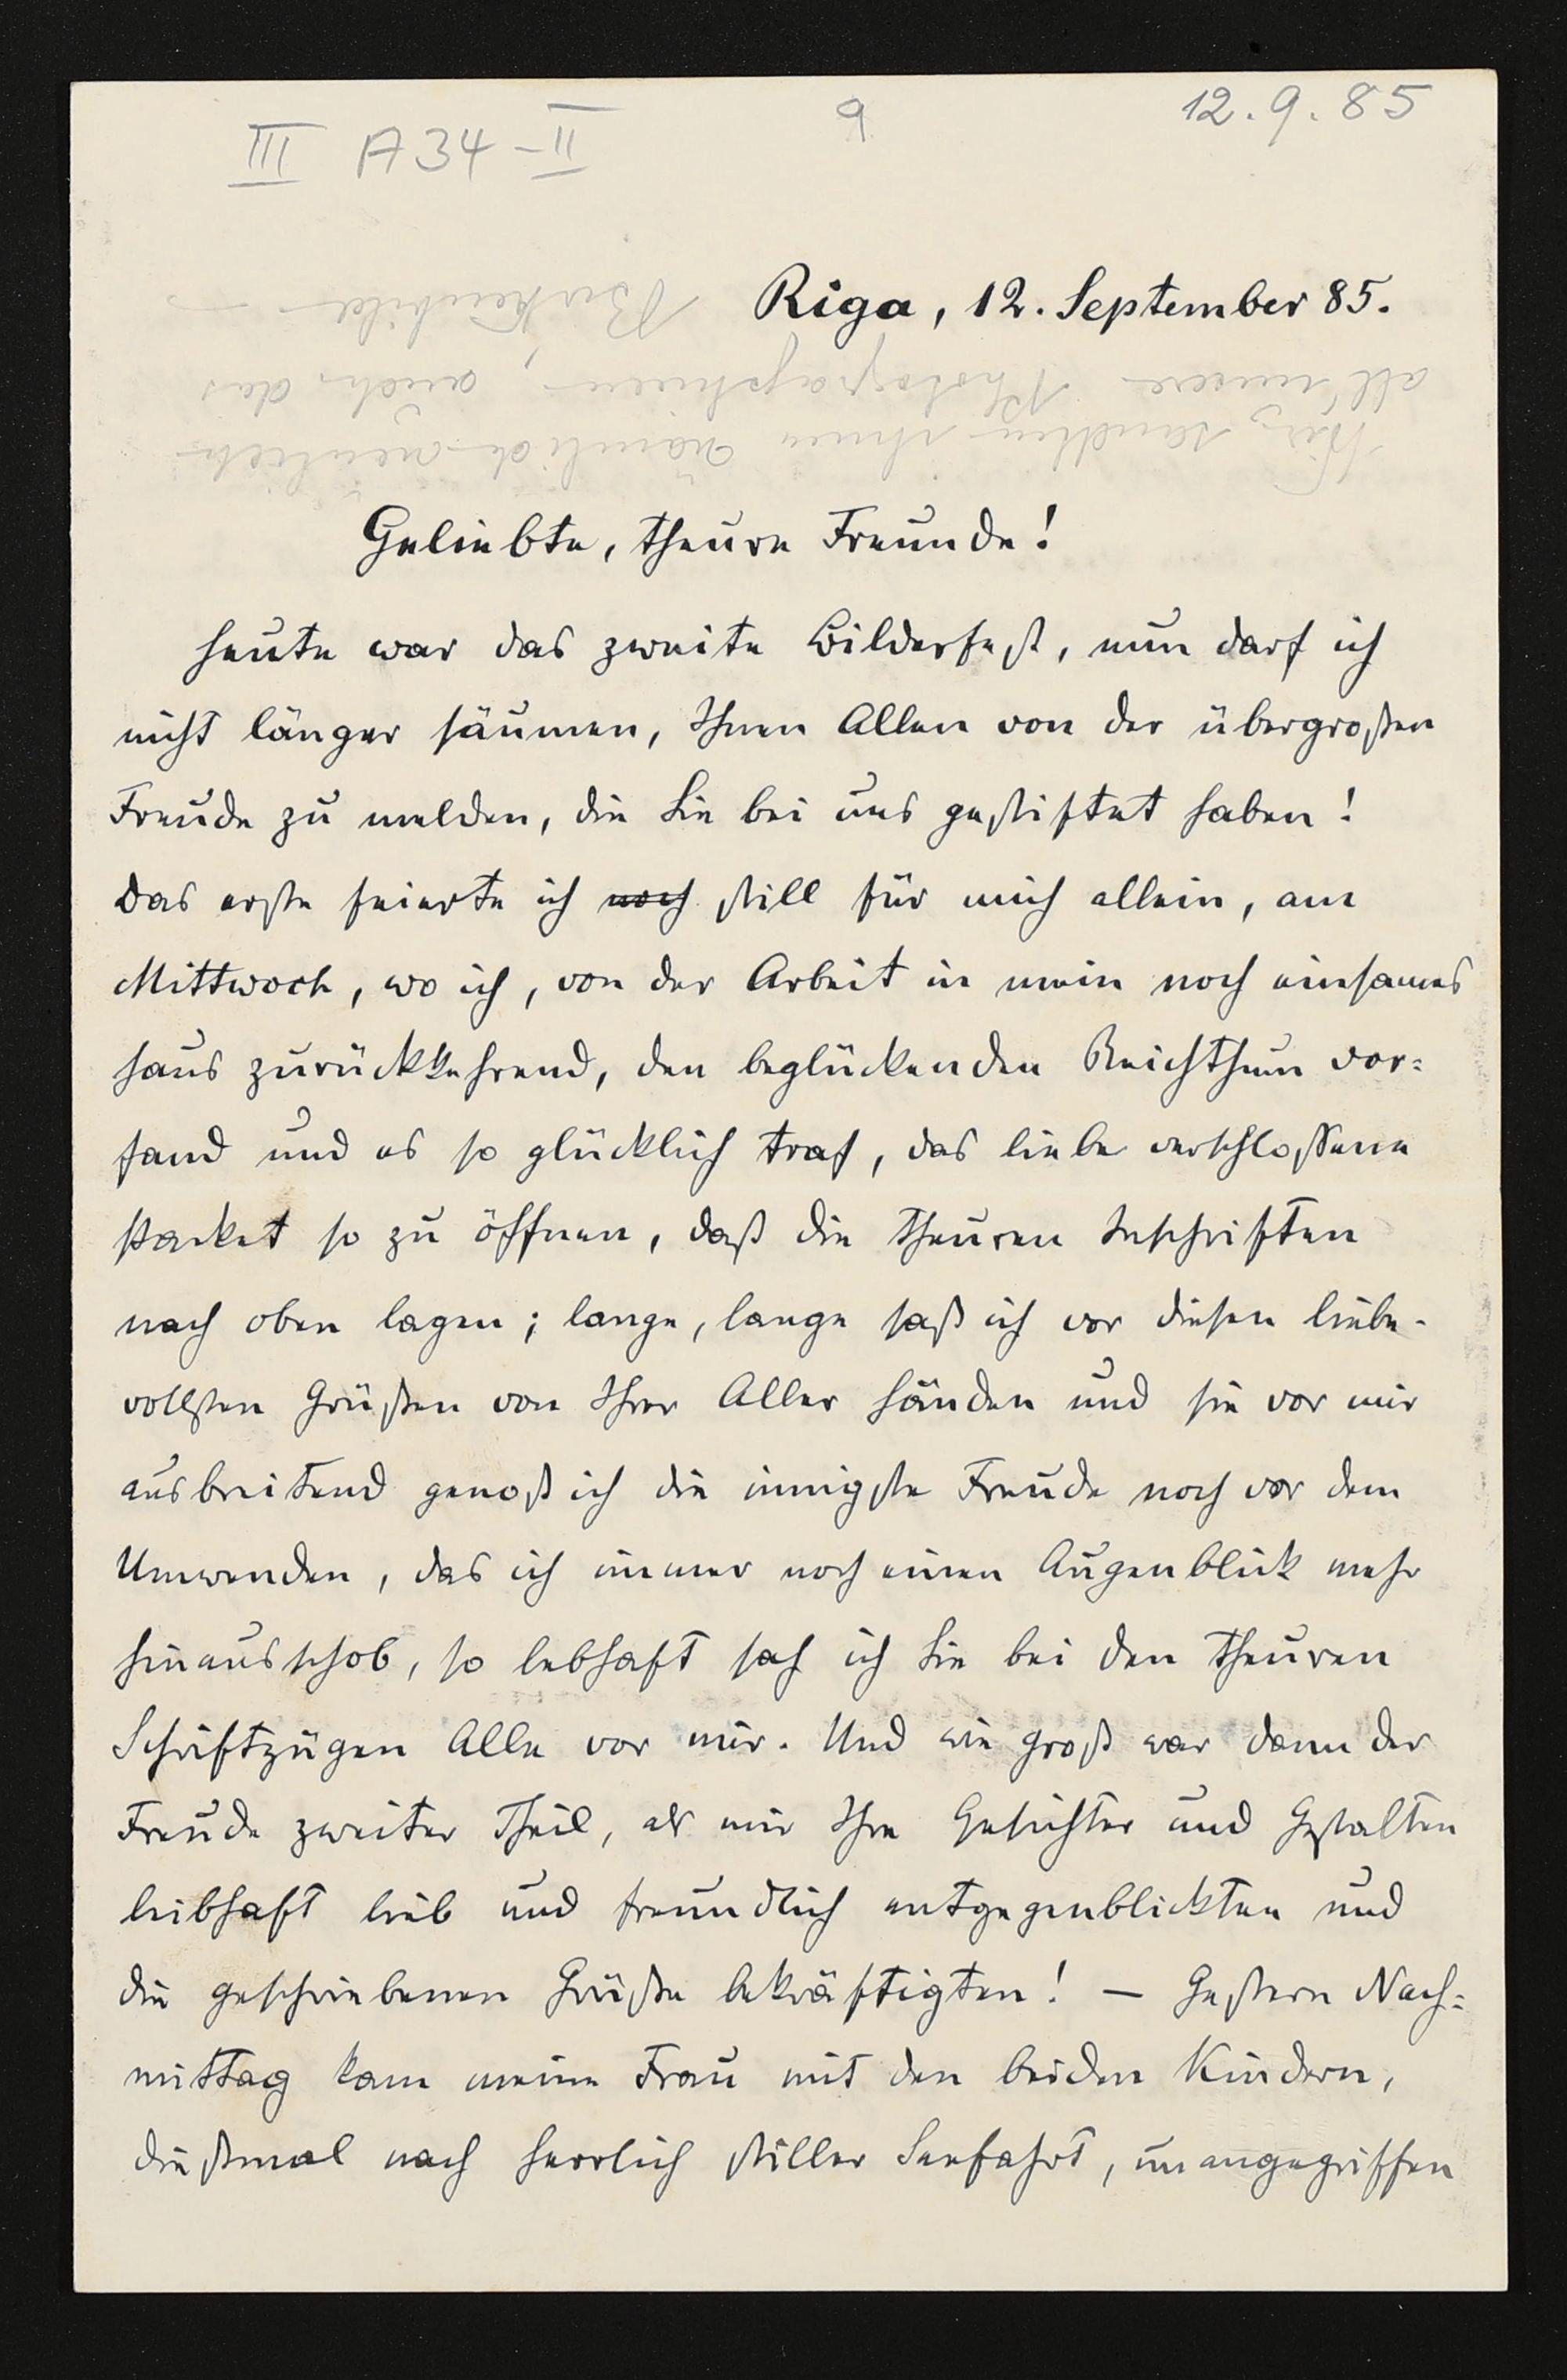 III A 34 - II
9
12.9.85
Riga, 12. September 85.
Geliebte, theure Freunde!
Heute war das zweite Bilderfest, nun darf ich
nicht länger säumen, Ihnen Allen von der übergroßen
Freude zu melden, die Sie bei uns gestiftet haben!
Das erste feierte ich noch still für mich allein, am
Mittwoch, wo ich, von der Arbeit in mein noch einsames
Haus zurückkehrend, den beglückenden Reichthum vor=
fand und es so glücklich traf, das liebe verschlossene
Packet so zu öffnen, daß die theuren Inschriften
nach oben lagen; lange, lange saß ich vor diesen liebe-
vollsten Grüßen von Ihrer Aller Händen und sie vor mir
ausbreitend genoß ich die innigste Freude noch vor dem
Umwenden, das ich immer noch einen Augenblick mehr
hinausschob, so lebhaft sah ich Sie bei den theuren
Schriftzügen Alle vor mir. Und wie groß war dann der
Freude zweiter Theil, als mir Ihre Gesichter und Gestalten
leibhaft lieb und freundlich entgegenblickten und
die geschriebenen Grüße bekräftigten! — Gestern Nach=
mittag kam meine Frau mit den beiden Kindern,
dießmal nach herrlich stiller Seefahrt, unangegriffen